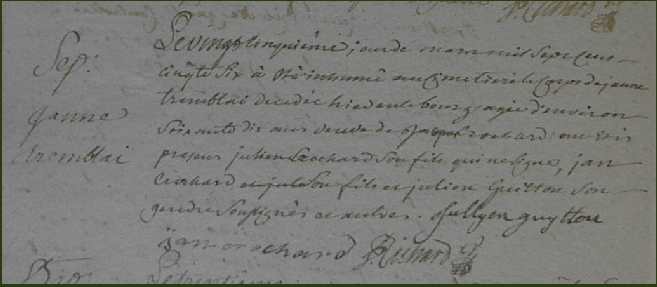 Sep:
janne
tremblai
Le vingt cinquiême jour de mars mil sept cens
cinqte six à eté inhumé au cimetiere le corps de janne
tremblai decedée hier en le bourg, agée d'environ
soixante dix ans veuve de jacque crochard: ont eté
presens julien crochard son fils qui ne signe, jan
crochard son fils et julien guitton son
gendre soussignés et autres. jullyen guytton
jan crochard Richard